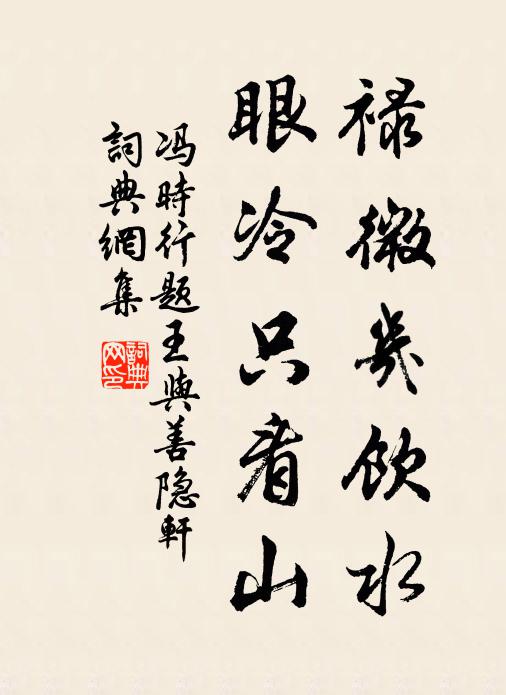 禄微幾饮水
眼冷只看山
冯時行题王與善隐軒
詞典網集
詞典
网印